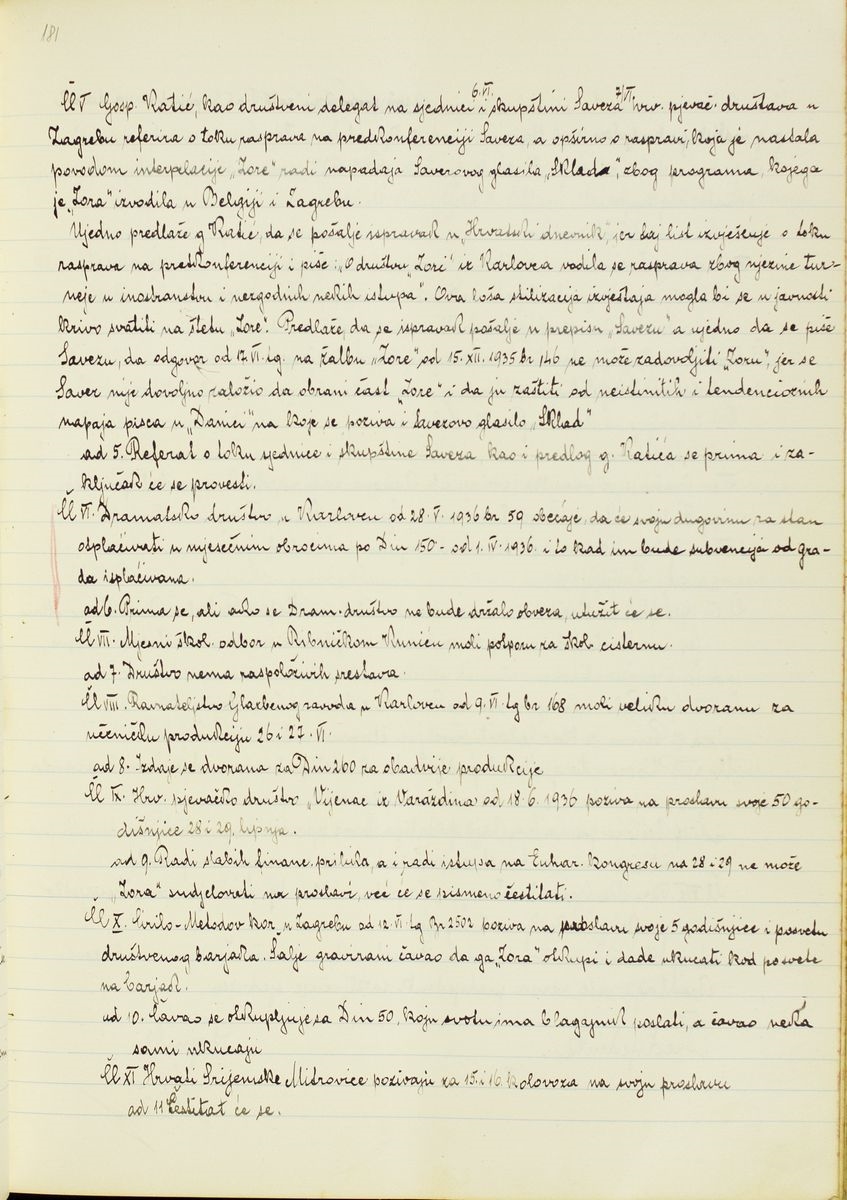 181
Čl V Gosp. Katić, kao društveni delegat na sjednici 6. VI. i skupštini Saveza 7/VI. hrv. pjevač. društava u
Zagrebu referira o toku rasprava na predkonferenciji Saveza, a opširno o raspravi, koja je nastala
povodom interpelacije „Zore" radi napadaja Savezovog glasila „Sklada", zbog programa, kojega
je „Zora" izvodila u Belgiji i Zagrebu.
Ujedno predlaže g Katić, da se pošalje ispravak u „Hrvatski dnevnik", jer taj list izvješćuje o toku
rasprava na predkonferenciji i piše: „O društvu „Zori" iz Karlovca vodila se rasprava zbog njezine tur-
neje u inostranstvu i nezgodnih nekih istupa". Ova loša stilizacija izvještaja mogla bi se u javnosti
krivo svatiti na štetu „Zore". Predlaže, da se ispravak pošalje u prepisu „Savezu" a ujedno da se piše
Savezu, da odgovor od 17. VI. tg. na žalbu „Zore" od 15. XII. 1935 br 146 ne može zadovoljiti „Zoru", jer se
Savez nije dovoljno založio da obrani čast „Zore" i da ju zaštiti od neistinitih i tendencioznih
napaja pisca u „Danici" na koje se poziva i Savezovo glasilo „Sklad"
ad 5. Referat o toku sjednice i skupštine Saveza kao i predlog g. Katića se prima i za-
ključak će se provesti.
Čl VI. Dramatsko društvo u Karlovcu od 28. V. 1936 br 59 obećaje, da će svoju dugovinu za stan
otplaćivati u mjesečnim obrocima po Din 150- od 1. IV. 1936. i to kad im bude subvencija od gra-
da isplaćivana.
ad 6. Prima se, ali ako se Dram. društvo ne bude držalo obveza, utužit će se.
Čl VII. Mjesni škol. odbor u Ribničkom Kunicu moli potporu za škol. cisternu.
ad 7. Društvo nema raspoloživih srestava.
Čl VIII. Ravnateljstvo Glazbenog zavoda u Karlovcu od 9. VI. tg br 168 moli veliku dvoranu za
učeničku produkciju 26 i 27. VI.
ad 8. Izdaje se dvorana za Din 200 za obadvije produkcije
Čl IX. Hrv. pjevačko društvo „Vijenac iz Varaždina" od 18. 6. 1936 poziva na proslavu svoje 50 go-
dišnjice 28 i 29. lipnja.
ad 9. Radi slabih financ. prilika, a i radi istupa na Euhar. kongresu na 28 i 29 ne može
„Zora" sudjelovati na proslavi, već će se pismeno čestitati.
Čl X. Ćirilo-Metodov kor u Zagrebu od 12. VI. tg Br 2502 poziva na proslavu svoje 5 godišnjice i posvetu
društvenog barjaka. Šalje gravirani čavao da ga „Zora" otkupi i dade ukucati kod posvete
na barjak.
ad 10. Čavao se otkupljuje sa Din 50, koju svotu ima blagajnik poslati, a čavao neka
sami ukucaju
Čl XI Hrvati Srijemske Mitrovice pozivaju za 15. i 16. kolovoza na svoju proslavu
ad 11 Čestitat će se.